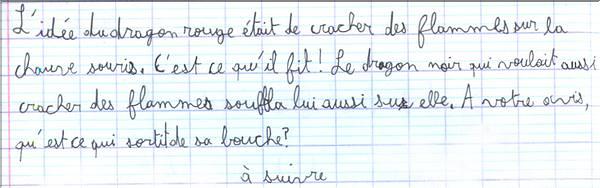 L'idée du dragon rouge était de cracher des flammes sur la
chauve souris. C'est ce qu'il fit! Le dragon noir qui voulait aussi
cracher des flammes souffla lui aussi sur elle. A votre avis,
qu'est ce qui sortit de sa bouche?
à suivre